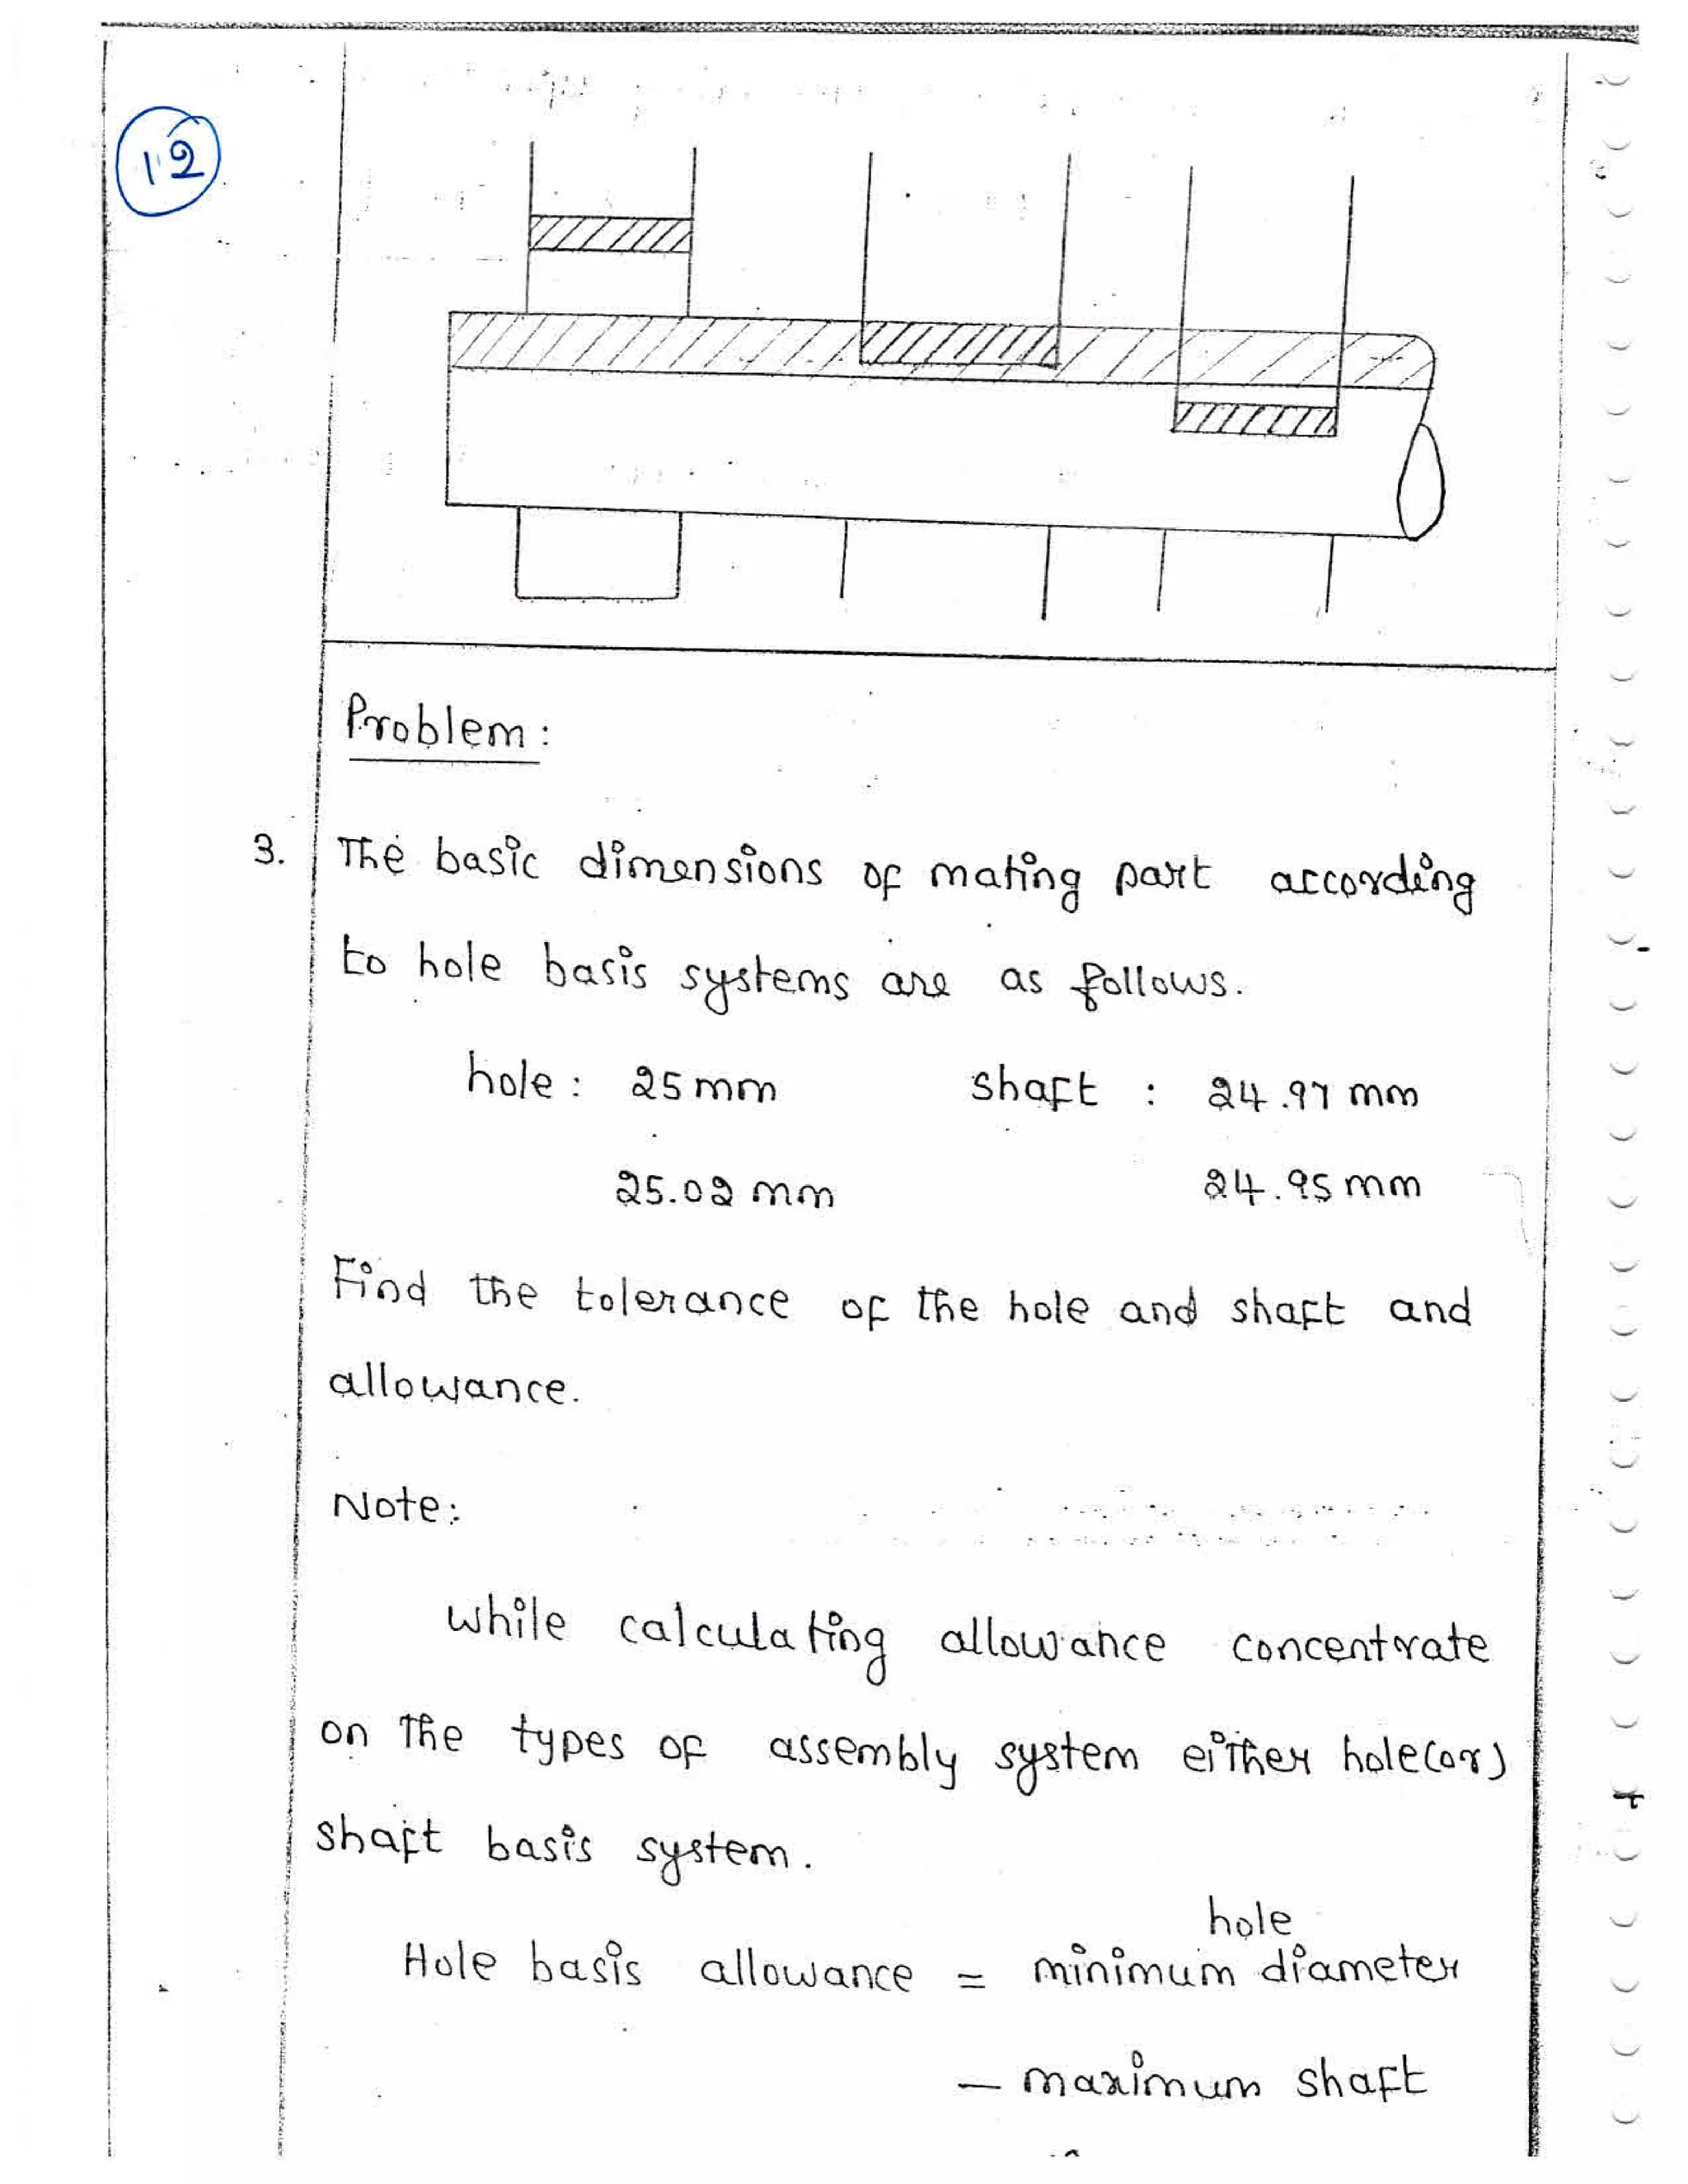 12
Problem :
3. The basic dimensions of mating part according
to hole basis systems are as follows.
hole : 25 mm shaft : 24.97 mm
25.02 mm 24.95 mm
Find the tolerance of the hole and shaft and
allowance.
Note:
while calculating allowance concentrate
on the types of assembly system either hole(or)
shaft basis system.
hole
Hole basis allowance = minimum diameter
- maximum shaft